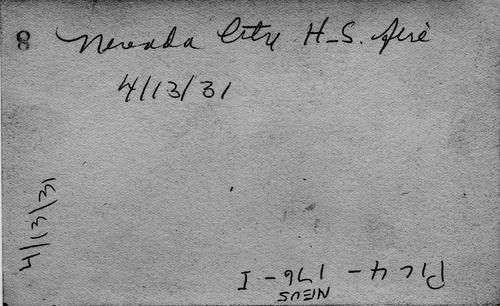 8 Nevada City H-S. fire
4/13/31
4/13/31
Pic 4 - 176 - I
NEUS